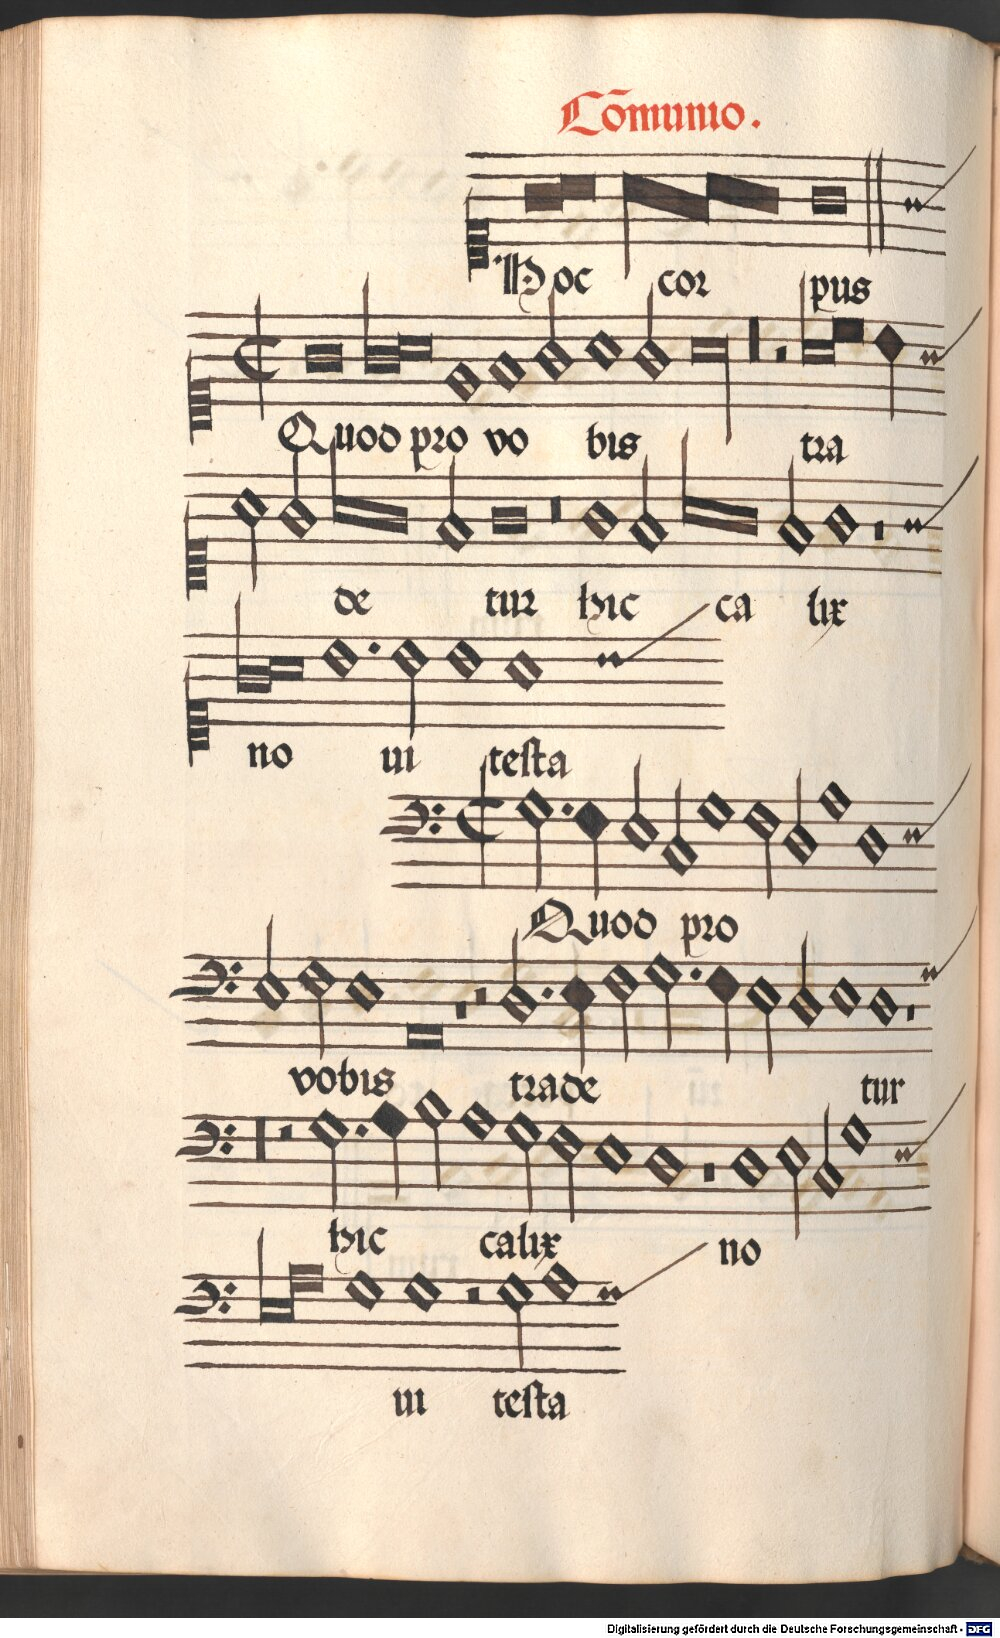 Cõmunio.
Hoc cor pus
Quod pro vo bis tra
de tur hic ca lix
no ui testa
Quod pro
vobis trade tur
hic calix no
ui testa
Digitalisierung gefördert durch die Deutsche Forschungsgemeinschaft - DFG